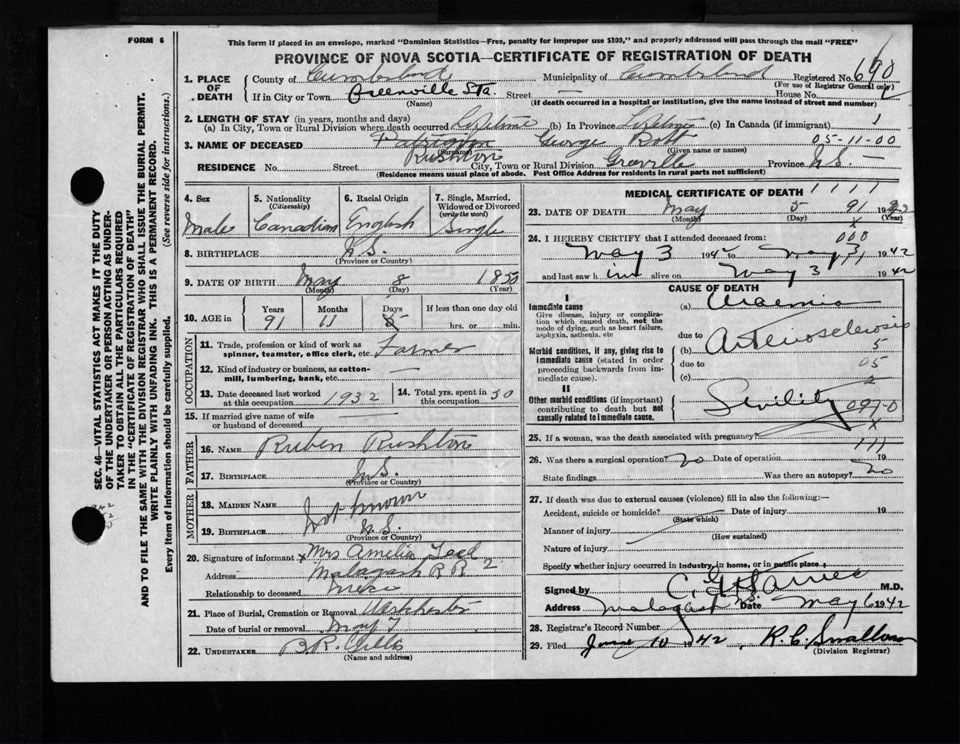 FORM 6
This form if placed in an envelope, marked "Dominion Statistics—Free, penalty for improper use $300," and properly addressed will pass through the mail "FREE"
PROVINCE OF NOVA SCOTIA—CERTIFICATE OF REGISTRATION OF DEATH
1. PLACE OF DEATH
County of Cumberland Municipality of Cumberland Registered No. 690
(For use of Registrar General only)
If in City or Town Greenville Sta. Street — House No.
(Name) (If death occurred in a hospital or institution, give the name instead of street and number)
2. LENGTH OF STAY (in years, months and days)
(a) In City, Town or Rural Division where death occurred Lifetime (b) In Province Lifetime (c) In Canada (if immigrant) 1
3. NAME OF DECEASED Rushton George 05-11-00
(Surname) (Given name or names)
RESIDENCE No. Street City, Town or Rural Division Province N.S. —
(Residence means usual place of abode. Post Office Address for residents in rural parts not sufficient)
4. Sex
Male
5. Nationality (Citizenship)
Canadian
6. Racial Origin
English
7. Single, Married, Widowed or Divorced (write the word)
Single
8. BIRTHPLACE N.S.
(Province or Country)
9. DATE OF BIRTH May 8 1850
(Month) (Day) (Year)
10. AGE in Years Months Days If less than one day old
91 11 hrs. or min.
OCCUPATION
11. Trade, profession or kind of work as spinner, teamster, office clerk, etc. Farmer
12. Kind of industry or business, as cotton-mill, lumbering, bank, etc. —
13. Date deceased last worked at this occupation 1932
14. Total yrs. spent in this occupation 50
15. If married give name of wife or husband of deceased
FATHER
16. NAME Ruben Rushton
17. BIRTHPLACE N.S.
(Province or Country)
MOTHER
18. MAIDEN NAME Not known
19. BIRTHPLACE N.S.
(Province or Country)
20. Signature of informant x Mrs Amelia
Address Malagash R R 2
Relationship to deceased Niece
21. Place of Burial, Cremation or Removal
Date of burial or removal May 7
22. UNDERTAKER
(Name and address)
MEDICAL CERTIFICATE OF DEATH 1 1 1 1
23. DATE OF DEATH May 5 91 1942
(Month) (Day) (Year)
x
24. I HEREBY CERTIFY that I attended deceased from: 000
May 3 1942 to May 3 1942
and last saw him alive on May 3 1942
CAUSE OF DEATH
I
Immediate cause
Give disease, injury or complication which caused death, not the mode of dying, such as heart failure, asphyxia, asthenia, etc
(a) Uraemia
due to
Morbid conditions, if any, giving rise to immediate cause (stated in order proceeding backwards from immediate cause).
(b) Arteriosclerosis
5
due to 05
(c) 2
II
Other morbid conditions (if important) contributing to death but not causally related to immediate cause.
Senility 097-0
x
25. If a woman, was the death associated with pregnancy?
111
26. Was there a surgical operation? No Date of operation 19
State findings Was there an autopsy? No
27. If death was due to external causes (violence) fill in also the following:—
Accident, suicide or homicide? Date of injury 19
(State which)
Manner of injury
(How sustained)
Nature of injury
Specify whether injury occurred in industry, in home, or in public place
Signed by M.D.
Address Malagash Date May 6 1942
28. Registrar's Record Number
29. Filed June 10 1942
(Division Registrar)
SEC. 46—VITAL STATISTICS ACT MAKES IT THE DUTY
OF THE UNDERTAKER OR PERSON ACTING AS UNDER-
TAKER TO OBTAIN ALL THE PARTICULARS REQUIRED
IN THE "CERTIFICATE OF REGISTRATION OF DEATH"
AND TO FILE THE SAME WITH THE DIVISION REGISTRAR WHO SHALL ISSUE THE BURIAL PERMIT.
WRITE PLAINLY WITH UNFADING INK. THIS IS A PERMANENT RECORD.
Every item of information should be carefully supplied. (See reverse side for instructions.)